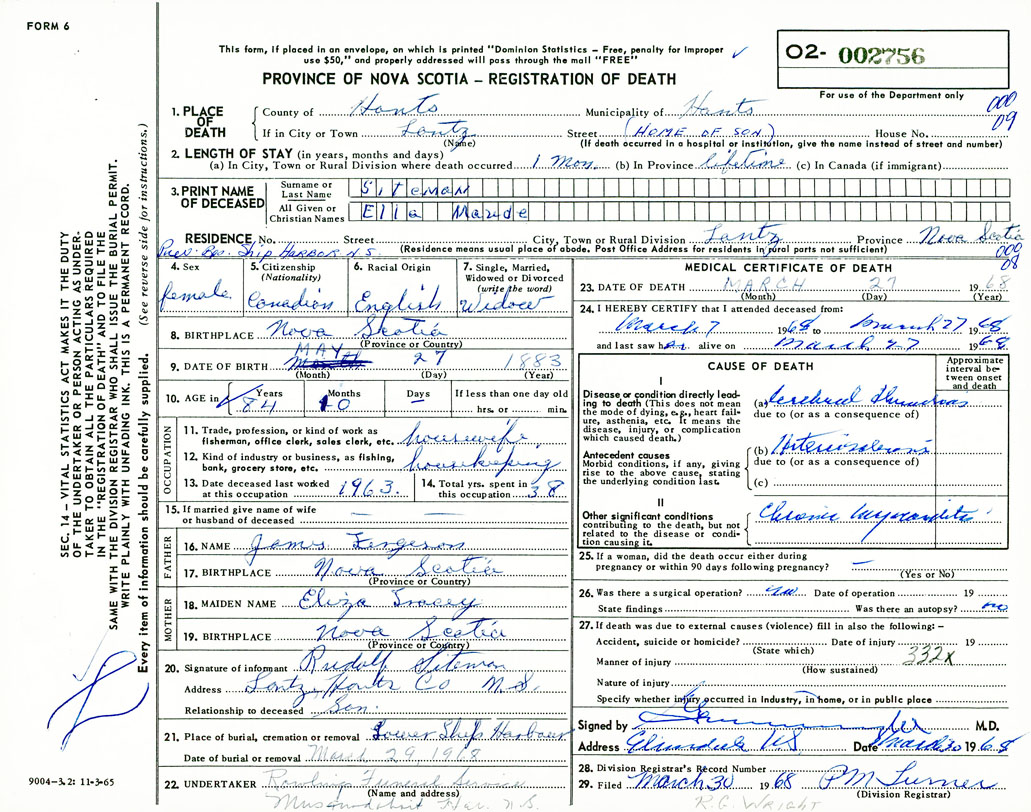 FORM 6
This form, if placed in an envelope, on which is printed "Dominion Statistics – Free, penalty for improper
use $50," and properly addressed will pass through the mail "FREE"
PROVINCE OF NOVA SCOTIA – REGISTRATION OF DEATH
O2- 002756
For use of the Department only
000
09
1. PLACE OF DEATH
County of Hants Municipality of Hants
If in City or Town Lantz Street (HOME OF SON) House No.
(Name) (If death occurred in a hospital or institution, give the name instead of street and number)
2. LENGTH OF STAY (in years, months and days)
(a) In City, Town or Rural Division where death occurred 1 Mon. (b) In Province lifetime (c) In Canada (if immigrant)
3. PRINT NAME OF DECEASED
Surname or Last Name Siteman
All Given or Christian Names Ella Maude
RESIDENCE No. Street City, Town or Rural Division Lantz Province Nova Scotia
(Residence means usual place of abode. Post Office Address for residents in rural parts not sufficient)
Prev. Res. Ship Harbor N.S.
000
08
4. Sex female
5. Citizenship (Nationality) Canadian
6. Racial Origin English
7. Single, Married, Widowed or Divorced (write the word) Widow
8. BIRTHPLACE Nova Scotia
(Province or Country)
9. DATE OF BIRTH MAY 27 1883
(Month) (Day) (Year)
10. AGE in Years 84 Months 10 Days – If less than one day old hrs. or min.
OCCUPATION
11. Trade, profession, or kind of work as fisherman, office clerk, sales clerk, etc. housewife
12. Kind of industry or business, as fishing, bank, grocery store, etc. housekeeping
13. Date deceased last worked at this occupation 1963.
14. Total yrs. spent in this occupation 38
15. If married give name of wife or husband of deceased — —
FATHER
16. NAME James Fergerson
17. BIRTHPLACE Nova Scotia
(Province or Country)
MOTHER
18. MAIDEN NAME Eliza Tracey
19. BIRTHPLACE Nova Scotia
(Province or Country)
20. Signature of informant Rudolf Siteman
Address Lantz, Hants Co N.S.
Relationship to deceased Son.
21. Place of burial, cremation or removal Lower Ship Harbour
Date of burial or removal March 29, 1968
22. UNDERTAKER Funeral Service
(Name and address)
N.S.
MEDICAL CERTIFICATE OF DEATH
23. DATE OF DEATH MARCH 27 1968
(Month) (Day) (Year)
24. I HEREBY CERTIFY that I attended deceased from:
March 7 1968 to March 27 1968
and last saw her alive on March 27 1968
CAUSE OF DEATH
Approximate interval between onset and death
I
Disease or condition directly leading to death (This does not mean the mode of dying, e.g., heart failure, asthenia, etc. It means the disease, injury, or complication which caused death.)
(a) Cerebral Thrombosis
due to (or as a consequence of)
Antecedent causes
Morbid conditions, if any, giving rise to the above cause, stating the underlying condition last.
(b) Arteriosclerosis
due to (or as a consequence of)
(c)
II
Other significant conditions contributing to the death, but not related to the disease or condition causing it.
Chronic Myocarditis
25. If a woman, did the death occur either during pregnancy or within 90 days following pregnancy? —
(Yes or No)
26. Was there a surgical operation? no Date of operation 19
State findings Was there an autopsy? no
27. If death was due to external causes (violence) fill in also the following: –
Accident, suicide or homicide? Date of injury 19
(State which) 332X
Manner of injury
(How sustained)
Nature of injury
Specify whether injury occurred in Industry, in home, or in public place
Signed by M.D.
Address Elmsdale NS Date March 30 1968
28. Division Registrar's Record Number
29. Filed March 30 1968 PM Turner
(Division Registrar)
R.G. Wright
SEC. 14 – VITAL STATISTICS ACT MAKES IT THE DUTY
OF THE UNDERTAKER OR PERSON ACTING AS UNDER-
TAKER TO OBTAIN ALL THE PARTICULARS REQUIRED
IN THE "REGISTRATION OF DEATH" AND TO FILE THE
SAME WITH THE DIVISION REGISTRAR WHO SHALL ISSUE THE BURIAL PERMIT.
WRITE PLAINLY WITH UNFADING INK. THIS IS A PERMANENT RECORD.
Every item of information should be carefully supplied. (See reverse side for instructions.)
9004-3.2: 11-3-65